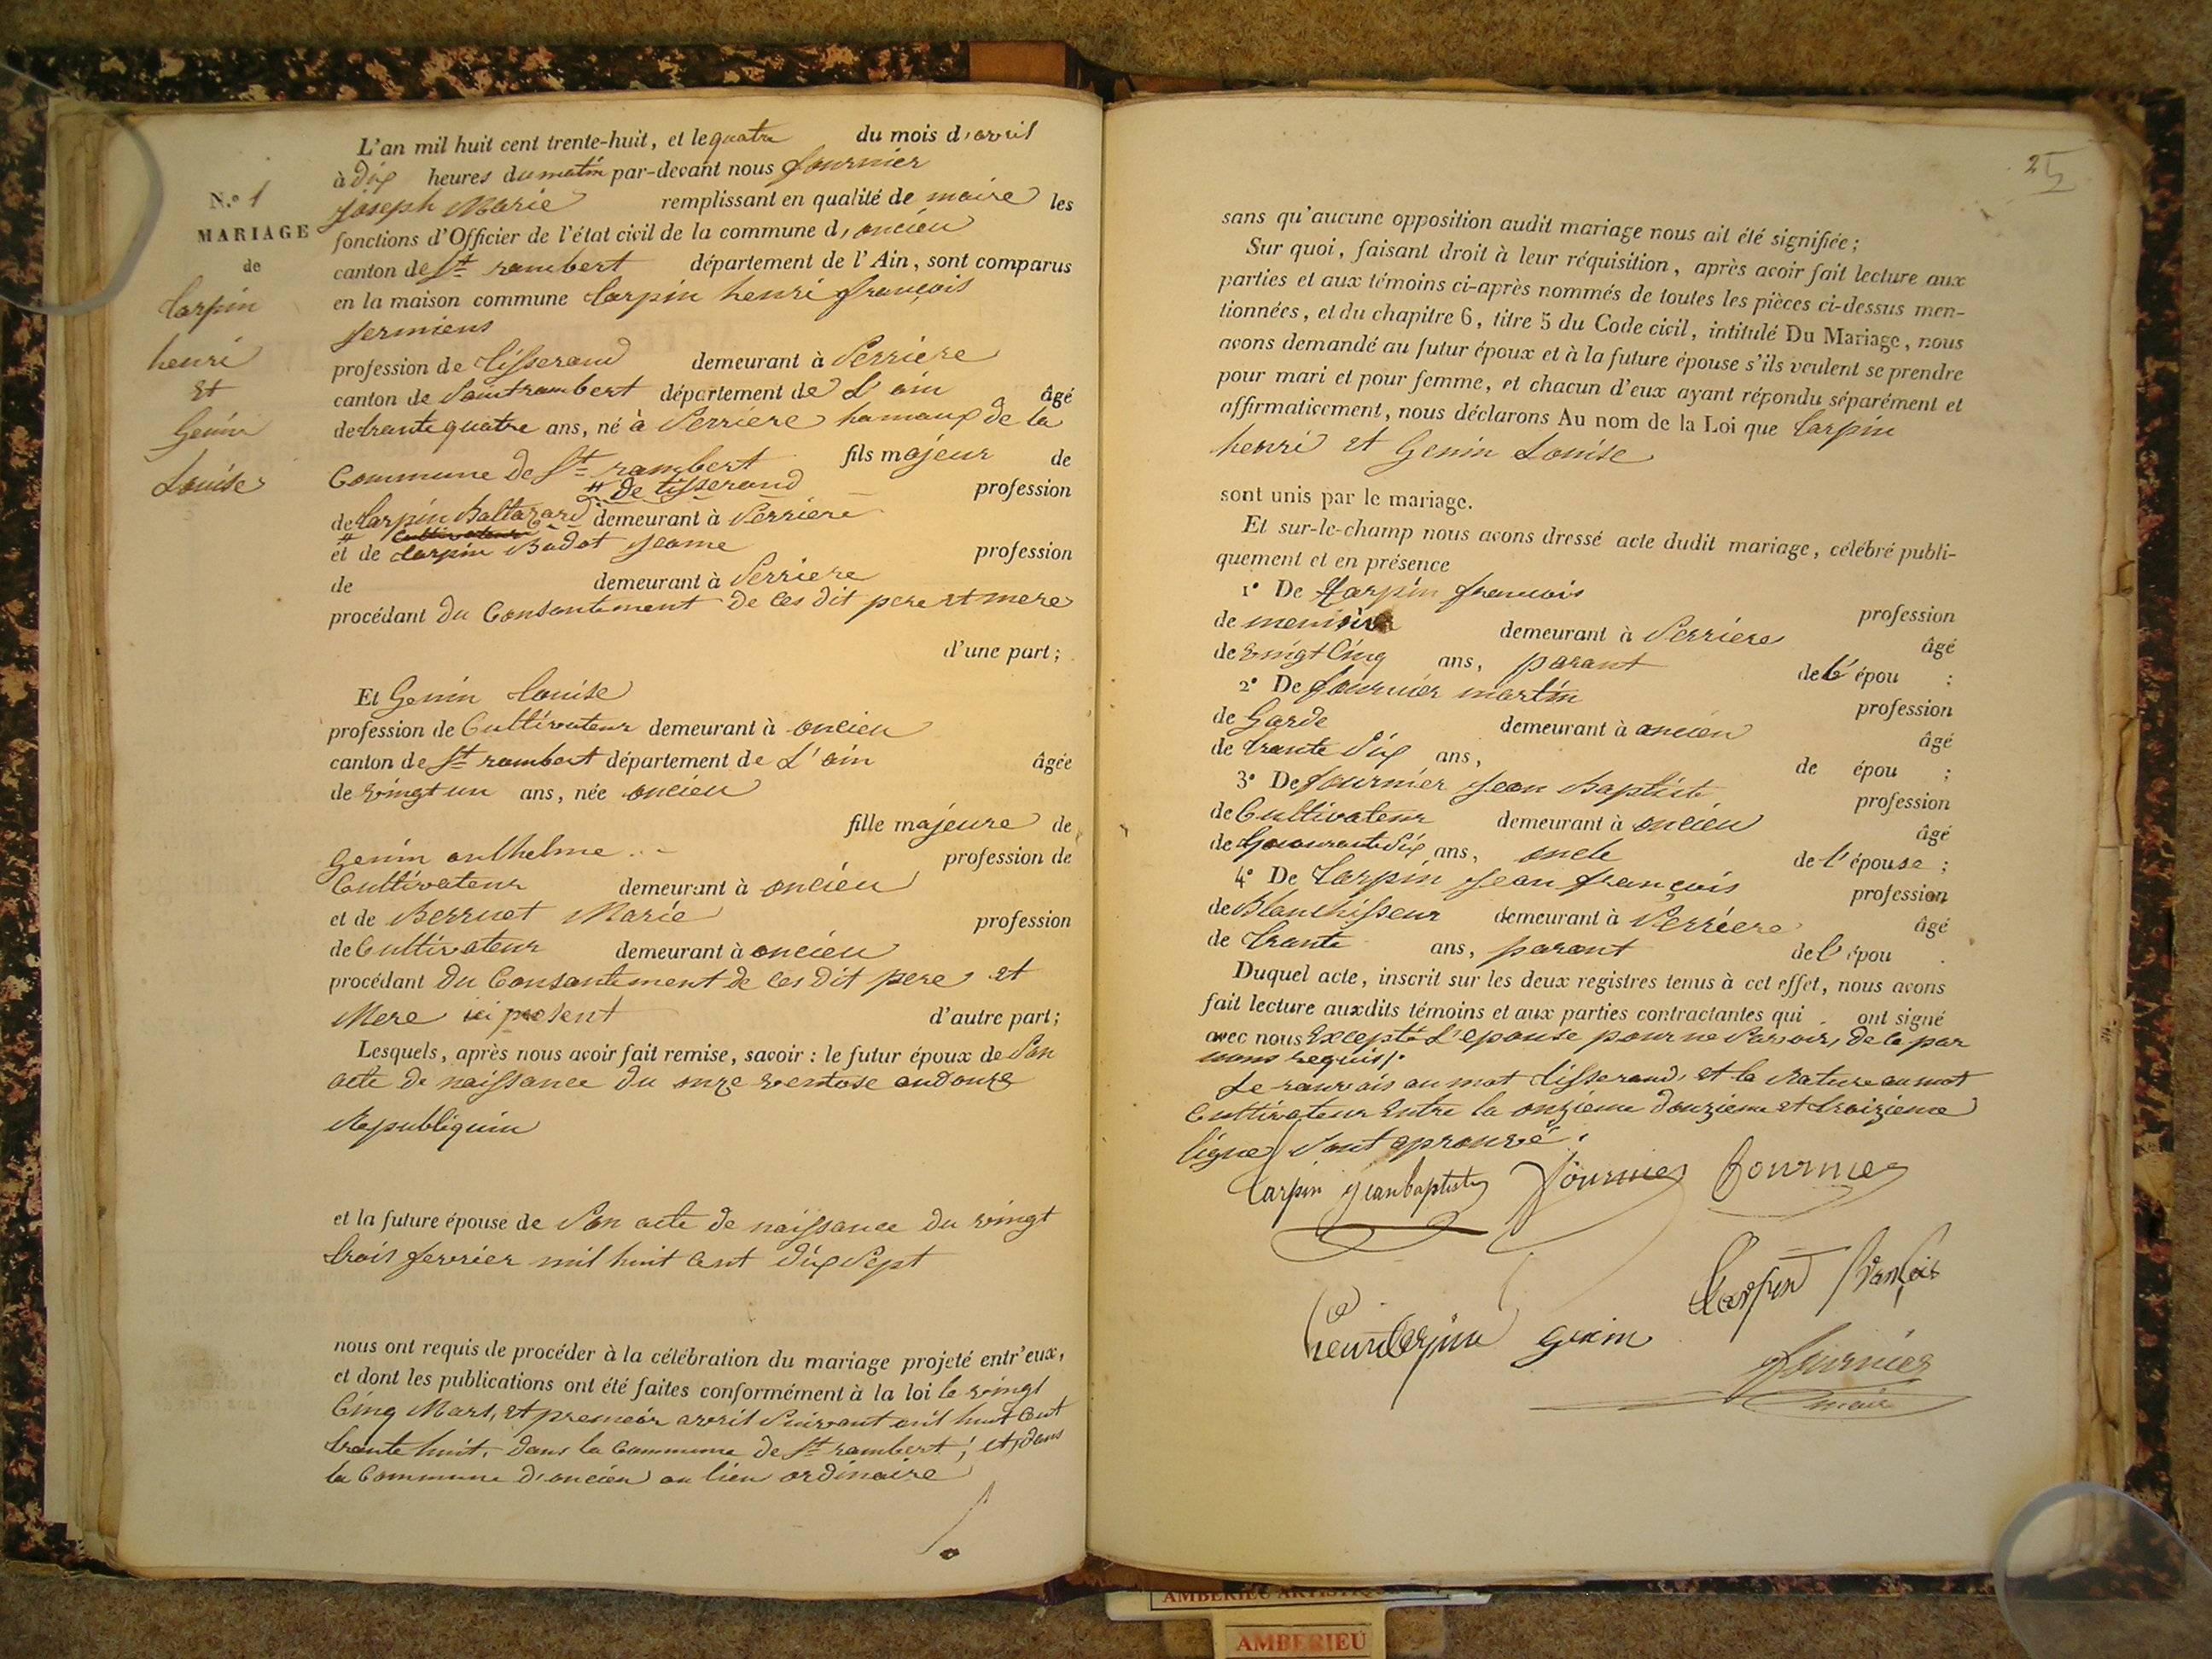 N.º 1
MARIAGE
de
Carpin
henri
et
Genin
Louise
L'an mil huit cent trente-huit, et le quatre du mois d'avril
à dix heures du matin par-devant nous fournier
joseph Marie remplissant en qualité de maire les
fonctions d'Officier de l'état civil de la commune d'oncieu
canton de St rambert département de l'Ain, sont comparus
en la maison commune Carpin henri françois
profession de tisserand demeurant à Serriere
canton de Saintrambert département de L'ain âgé
de trante quatre ans, né à Serriere hamaux de la
Commune de St rambert fils majeur de
# de tisserand profession
de Carpin Baltazard demeurant à Serriere
# Cultivateur
et de Carpin Badot jeanne profession
de demeurant à Serriere
procédant du Consantement de ces dit pere et mere
d'une part;
Et Genin Louise
profession de Cultivateur demeurant à oncieu
canton de St rambert département de L'ain âgée
de vingt un ans, née oncieu
fille majeure de
genin anthelme profession de
Cultivateur demeurant à oncieu
et de Berruet Marie profession
de Cultivateur demeurant à oncieu
procédant du Consantement de ces dit pere et
Mere ici present d'autre part;
Lesquels, après nous avoir fait remise, savoir : le futur époux de Son
acte de naissance du onze ventose an douze
Republiquin
et la future épouse de Son acte de naissance du vingt
trois fevrier mil huit cent dix Sept
nous ont requis de procéder à la célébration du mariage projeté entr'eux,
et dont les publications ont été faites conformément à la loi le vingt
Cinq Mars, et premeir avril Suivant mil huit Cent
trante huit, dans la Commune de St rambert; et dans
la Commune d'oncieu au lieu ordinaire
25
sans qu'aucune opposition audit mariage nous ait été signifiée;
Sur quoi, faisant droit à leur réquisition, après avoir fait lecture aux
parties et aux témoins ci-après nommés de toutes les pièces ci-dessus men-
tionnées, et du chapitre 6, titre 5 du Code civil, intitulé Du Mariage, nous
avons demandé au futur époux et à la future épouse s'ils veulent se prendre
pour mari et pour femme, et chacun d'eux ayant répondu séparément et
affirmativement, nous déclarons Au nom de la Loi que Carpin
henri et Genin Louise
sont unis par le mariage.
Et sur-le-champ nous avons dressé acte dudit mariage, célébré publi-
quement et en présence
1º De Carpin francois
profession
de demeurant à Serriere âgé
de vingt Cinq ans, parant de l'épou ;
2º De fournier martin profession
de Garde demeurant à oncieu âgé
de trante dix ans, de épou ;
3º De fournier jean Baptiste profession
de Cultivateur demeurant à oncieu âgé
de ans, oncle de l'épouse ;
4º De Carpin jean françois profession
de Blanchisseur demeurant à Serriere âgé
de trante ans, parant de l'épou .
Duquel acte, inscrit sur les deux registres tenus à cet effet, nous avons
fait lecture auxdits témoins et aux parties contractantes qui ont signé
avec nous Excepté L'epouse pour ne Savoir, de ce par
nous requis/.
Le ranvois au mot tisserand, et la Rature au mot
Cultivateur Entre la onzieme douzieme et treizieme
ligne/ Sont aprouvé.
Carpin jeanbaptiste fournier fournier
Carpin françois
henri Carpin genin
fournier
maire
AMBERIEU ARTISTIQUE
AMBERIEU